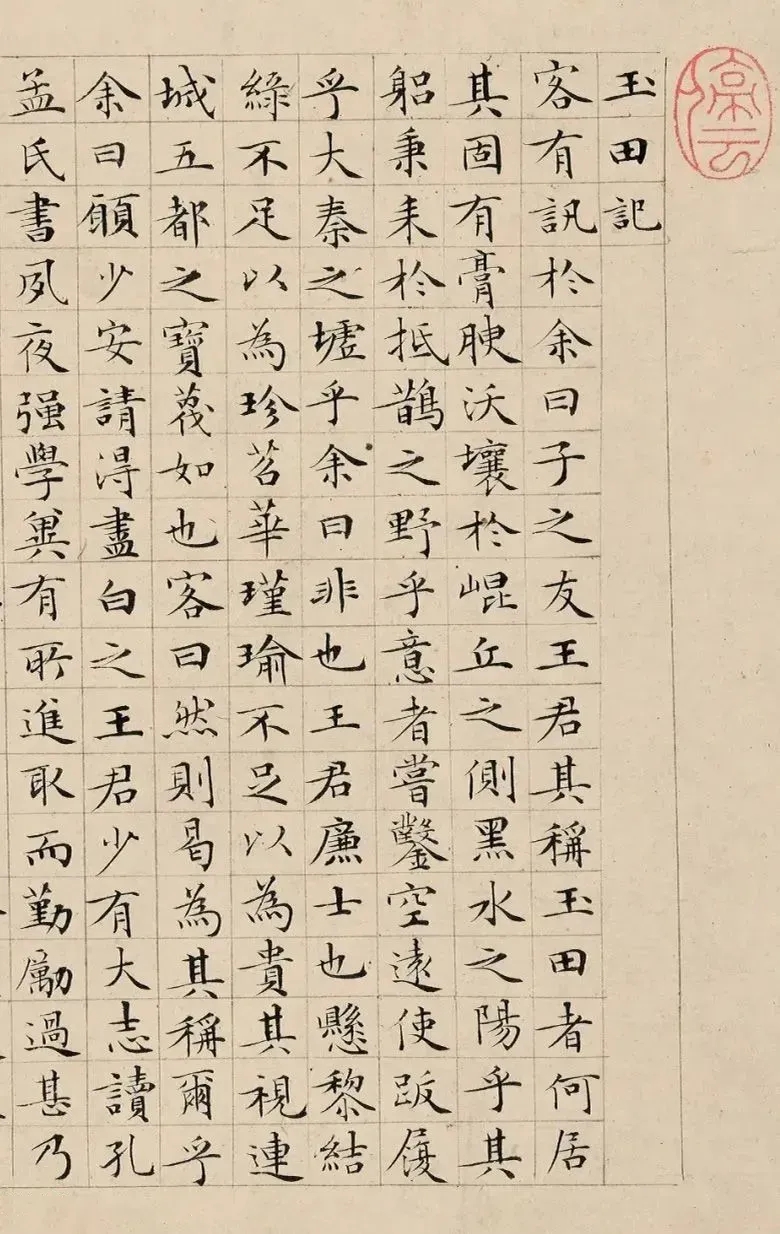 停云
玉田記
客有訊於余曰子之友王君其稱玉田者何居
其固有膏腴沃壤於崐丘之側黑水之陽乎其
躳秉耒於抵鵲之野乎意者嘗鑿空遠使跋履
乎大秦之墟乎余曰非也王君廉士也懸黎結
綠不足以為珍苕華瑾瑜不足以為貴其視連
城五都之寶蔑如也客曰然則曷為其稱爾乎
余曰願少安請得盡白之王君少有大志讀孔
孟氏書夙夜强學冀有所進取而勤勵過甚乃